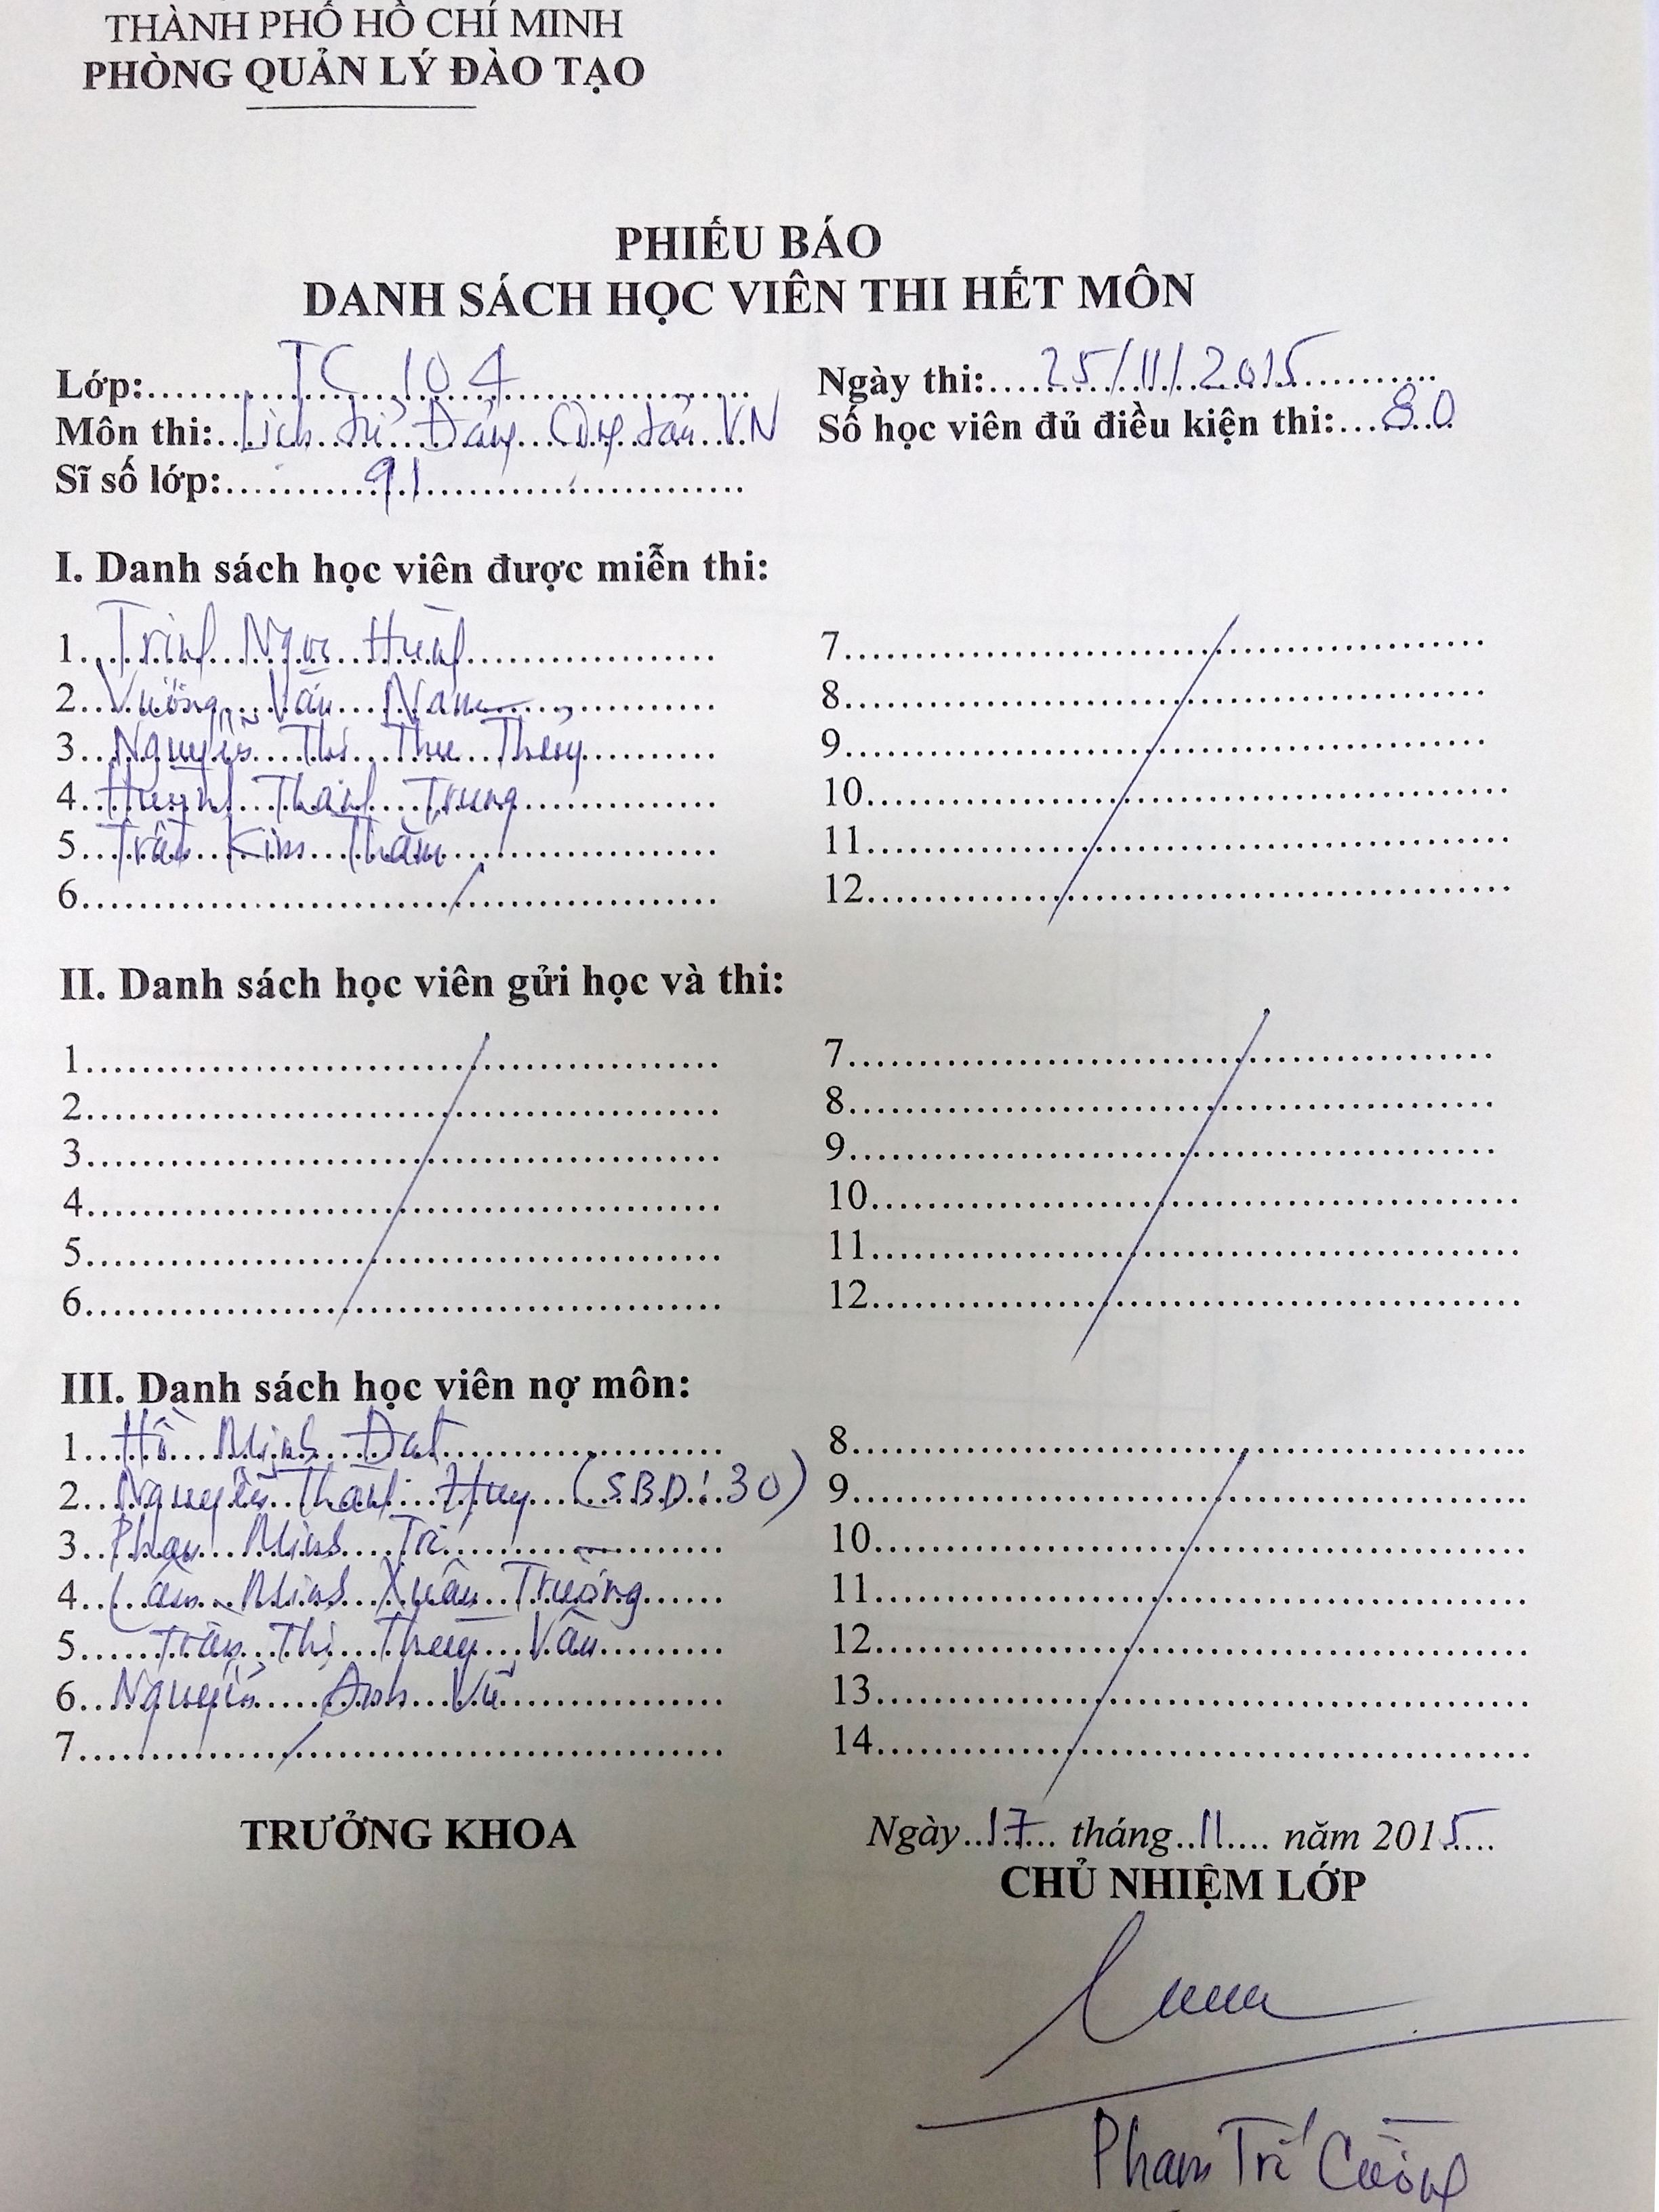 THÀNH PHỐ HỒ CHÍ MINH
PHÒNG QUẢN LÝ ĐÀO TẠO
PHIẾU BÁO
DANH SÁCH HỌC VIÊN THI HẾT MÔN
Lớp: TC 104 Ngày thi: 25/11/2015
Môn thi: Lịch sử Đảng Cộng sản VN Số học viên đủ điều kiện thi: 80
Sĩ số lớp: 91
I. Danh sách học viên được miễn thi:
1. Trịnh Ngọc Hùng 7
2. Vương Văn Nam 8
3. Nguyễn Thị Thu Thủy 9
4. Huỳnh Thành Trung 10
5. Trần Kim Thắm 11
6 12
II. Danh sách học viên gửi học và thi:
1 7
2 8
3 9
4 10
5 11
6 12
III. Danh sách học viên nợ môn:
1. Hồ Minh Đạt 8
2. Nguyễn Thanh Huy (SBD: 30) 9
3. Phan Minh Trí 10
4. Lâm Minh Xuân Trường 11
5. Trần Thị Thúy Vân 12
6. Nguyễn Anh Vũ 13
7 14
TRƯỞNG KHOA Ngày 17 tháng 11 năm 2015
CHỦ NHIỆM LỚP
Phạm Trí Cường